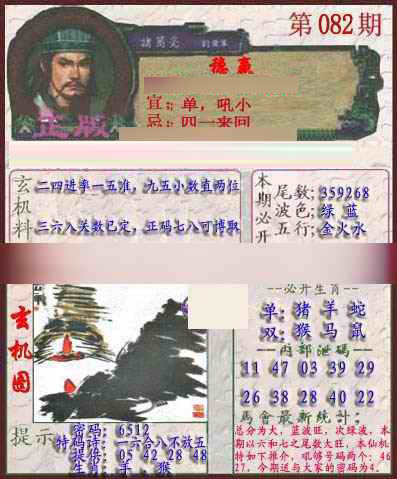 第082期
諸葛亮
稳赢
正版
宜:单,吼小
忌:四一来回
玄机料
二四进率一五准，九五小数直两位
三六八关数已定，正码七八可博取
本期必开
尾数:359268
波色:绿 蓝
五行:金火水
玄机图
必开生肖
单:猪羊蛇
双:猴马鼠
内部泄码
11 47 03 39 29
26 38 28 40 22
馬會最新统计:
总分为大，蓝波旺，次绿波，本
期以六和七之尾数大旺，本仙机
特如下推介，吼够号码两个:46
27，今期送与大家的密码为4.
提示
密码:6512
特码诗:一六合八不放五
提倍:05 42 28 48
生肖:羊、猴